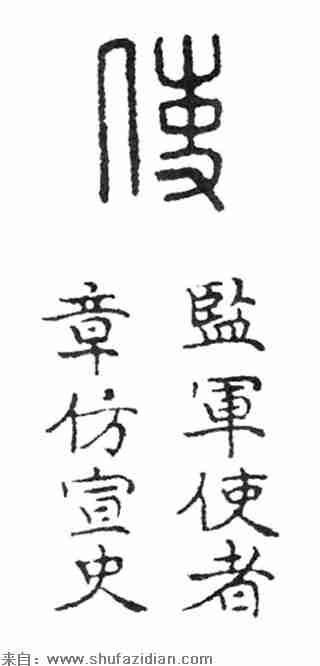 使
監軍使者
章仿宣史
来自：www.shufazidian.com